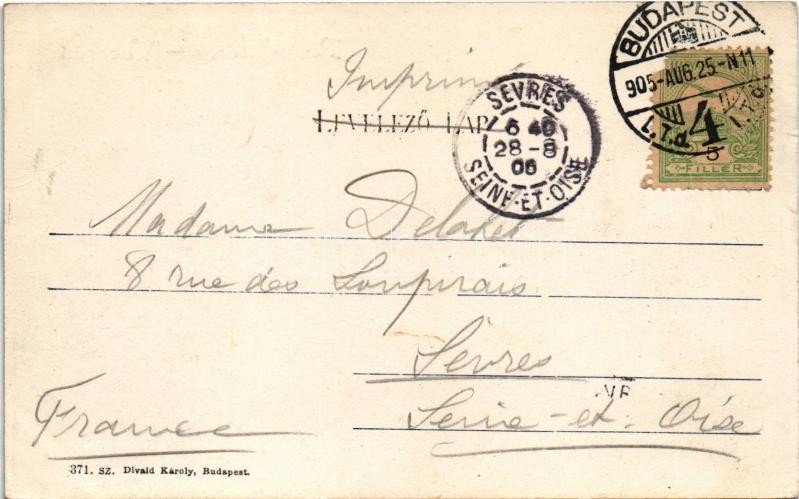 BUDAPEST
905-AUG.25-N11
I.T.d.
4
5
FILLÉR
Imprimé
LEVELEZŐ LAP
SEVRES
6 40
28-8
05
SEINE-ET-OISE
Madame
8 rue des
Sèvres
Seine-et-Oise
France
371. SZ. Divald Károly, Budapest.